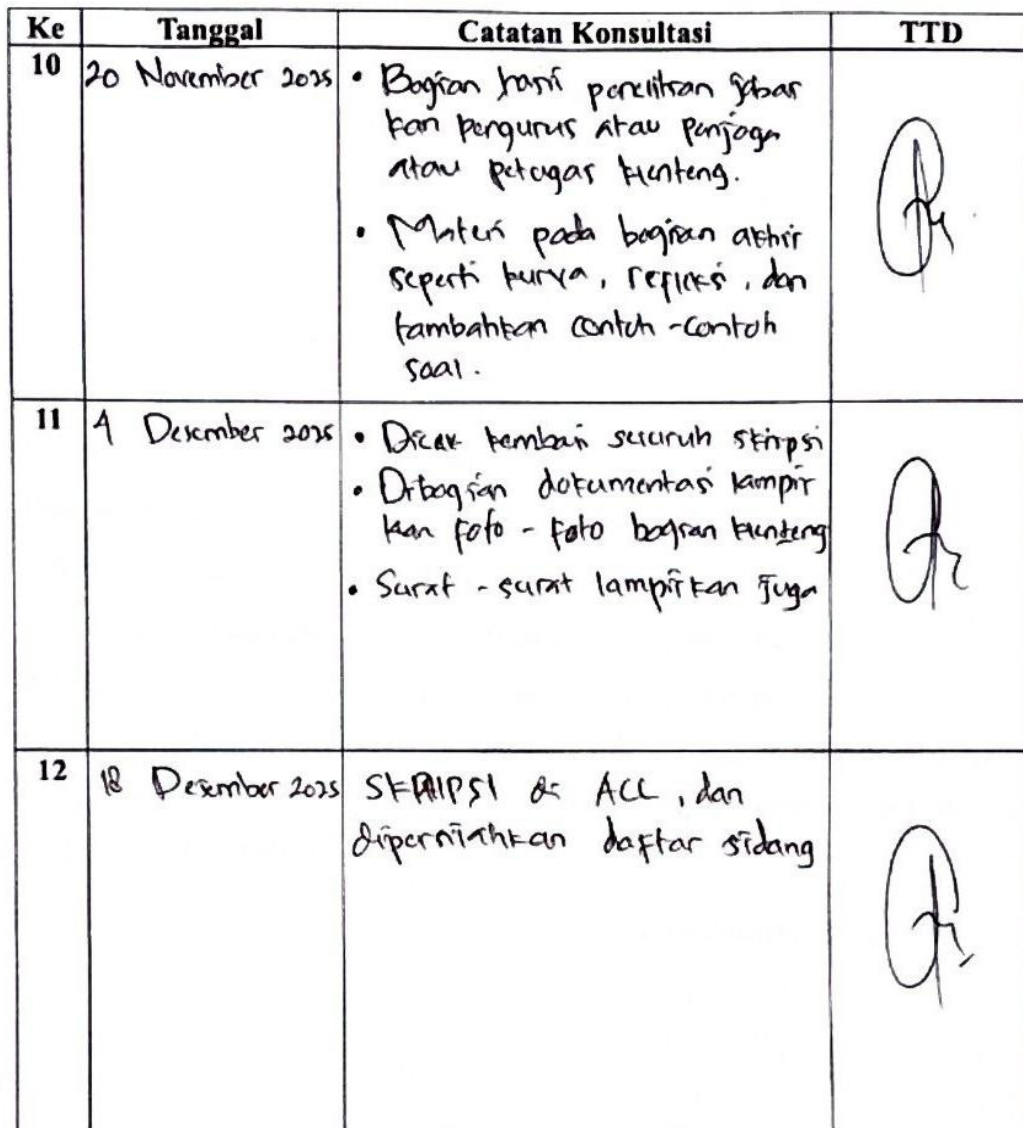 Ke Tanggal Catatan Konsultasi TTD
10 20 November 2025 • Bagian hasil penelitian jabar
kan pengurus atau penjaga
atau petugas klenteng.
• Materi pada bagian akhir
seperti kurva, refleksi, dan
tambahkan contoh-contoh
soal.
11 4 Desember 2025 • Dicek kembali seluruh skripsi
• Dibagian dokumentasi lampir
kan foto-foto bagian klenteng
• Surat-surat lampirkan juga
12 18 Desember 2025 SKRIPSI di ACC, dan
dipersilahkan daftar sidang